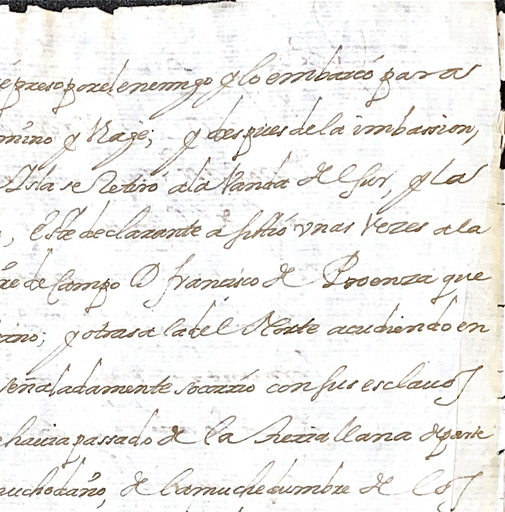 preso por el enemigo y lo embarcó para
mino y Viaje; y despues de la imbassion,
Isla se Retiró a la Vanda del Sur, y las
este declarante asistió vnas Vezes a la
de Campo D francisco de Proenza que
ino; y otras a la del Norte acudiendo en
señaladamente socorrio con sus esclauos
hauia passado de la tierra llana
mucho daño, de la muchedumbre de los